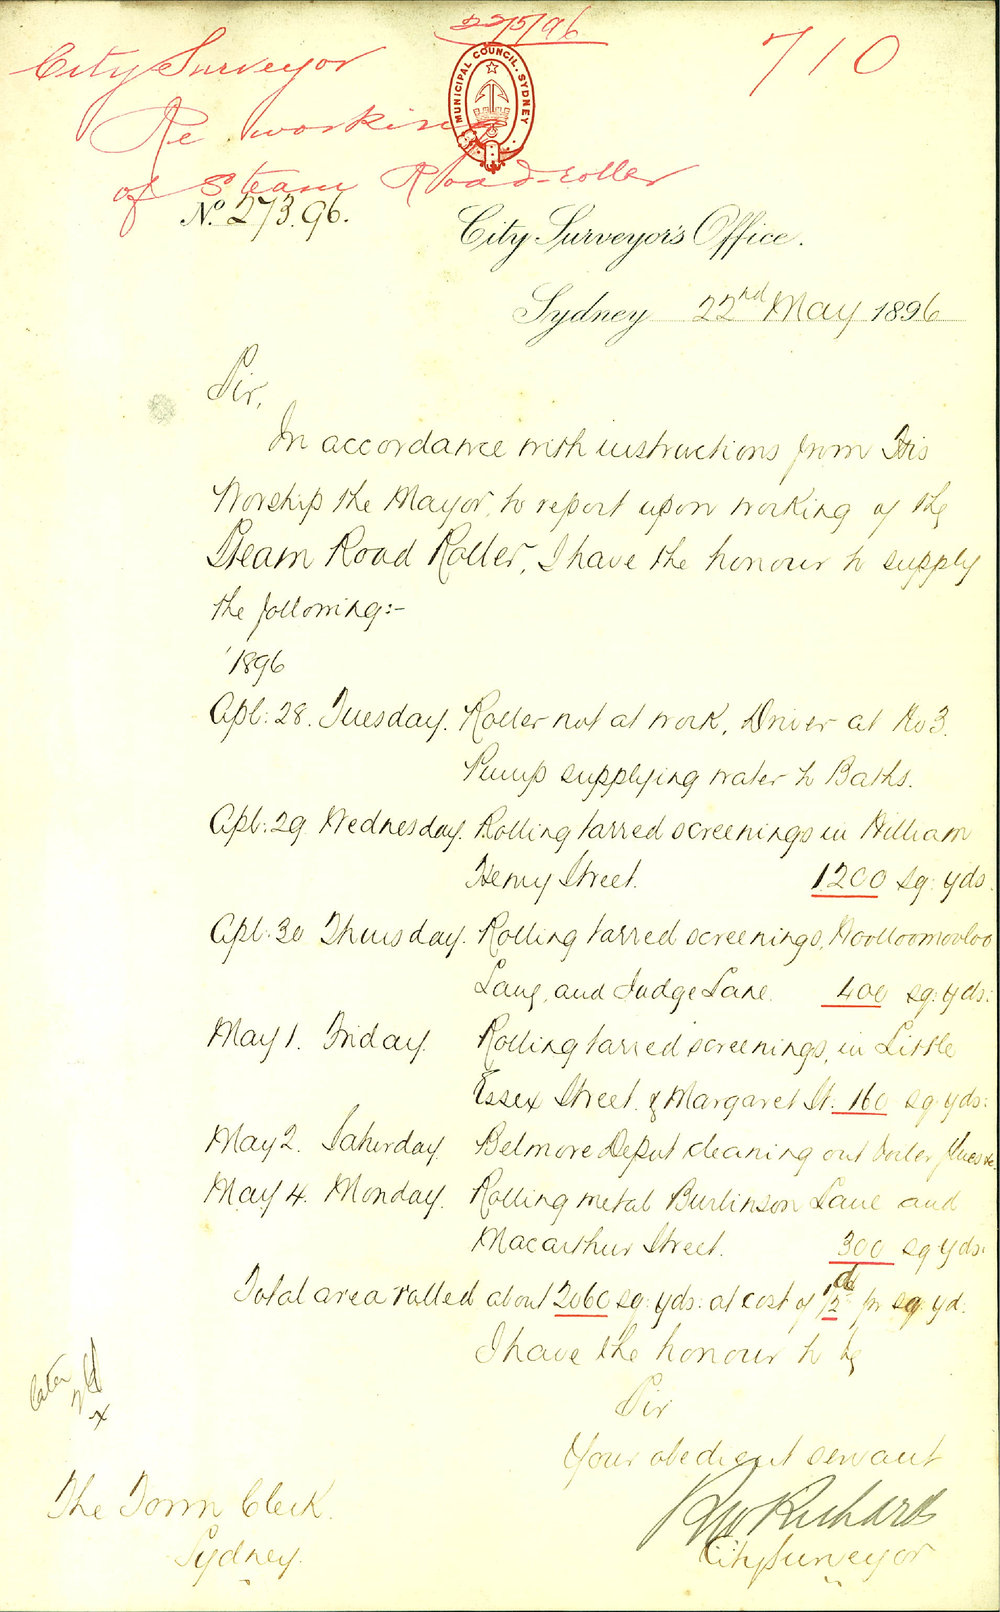 22/5/96
710
City Surveyor
Re working
of Steam Road-roller
MUNICIPAL COUNCIL. SYDNEY
No. 273.96.
City Surveyor's Office.
Sydney 22nd May 1896
Sir,
In accordance with instructions from His
Worship the Mayor, to report upon working of the
Steam Road Roller, I have the honour to supply
the following:-
1896
Apl: 28. Tuesday. Roller not at work, Driver at No 3.
Pump supplying water to Baths.
Apl: 29 Wednesday. Rolling tarred screenings in William
Henry Street. 1200 sq: yds.
Apl: 30 Thursday. Rolling tarred screenings, Woolloomooloo
Lane, and Judge Lane. 400 sq: yds:
May 1. Friday. Rolling tarred screenings, in Little
Essex Street. & Margaret St. 160 sq: yds:
May 2. Saturday. Belmore Depot cleaning out boiler flues &c.
May 4. Monday. Rolling metal Burlinson Lane and
Macarthur Street. 300 sq yds.
Total area rolled about 2060 sq: yds: at cost of 1/2d pr sq: yd.
I have the honour to be
Sir
Your obedient servant
RW Richards
City Surveyor
The Town Clerk.
Sydney.